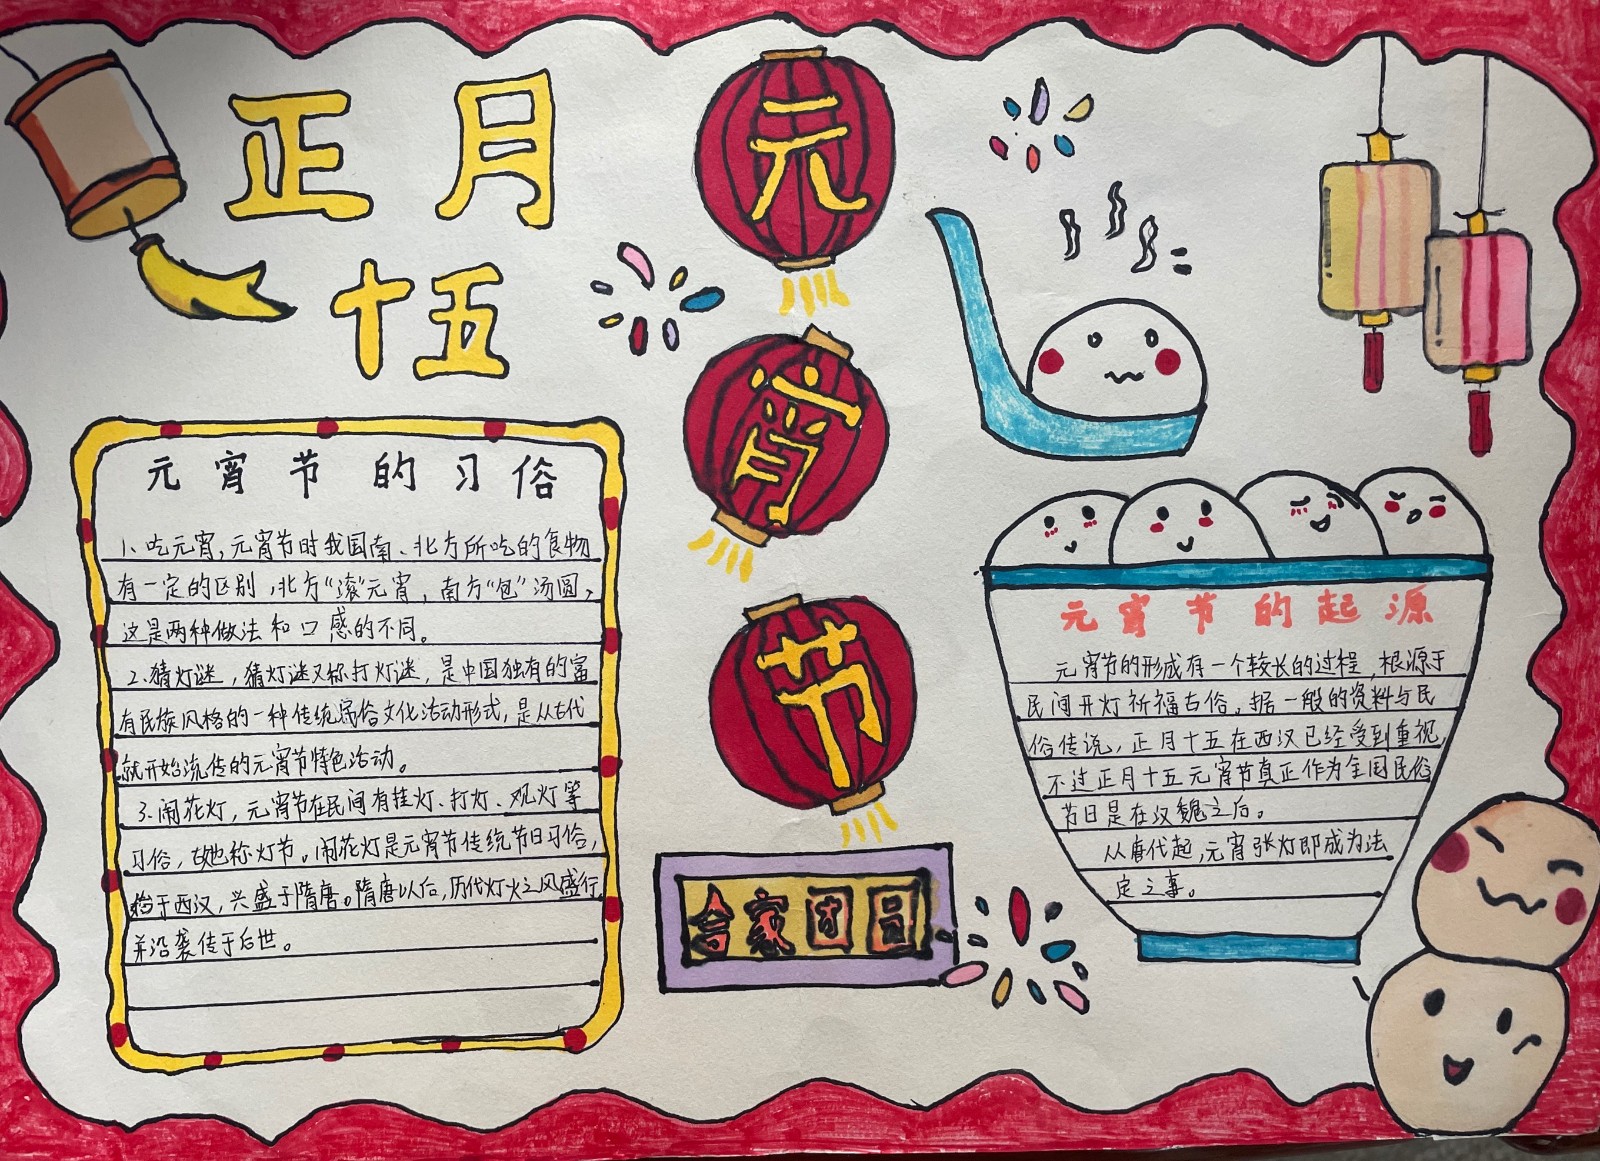 正月
十五
元
宵
节
元宵节的习俗
1、吃元宵，元宵节时我国南、北方所吃的食物
有一定的区别，北方“滚”元宵，南方“包”汤圆，
这是两种做法和口感的不同。
2、猜灯谜，猜灯谜又称打灯谜，是中国独有的富
有民族风格的一种传统民俗文化活动形式，是从古代
就开始流传的元宵节特色活动。
3、闹花灯，元宵节在民间有挂灯、打灯、观灯等
习俗，故也称灯节。闹花灯是元宵节传统节日习俗，
始于西汉，兴盛于隋唐。隋唐以后，历代灯火之风盛行，
并沿袭传于后世。
合家团圆
元宵节的起源
元宵节的形成有一个较长的过程，根源于
民间开灯祈福古俗。据一般的资料与民
俗传说，正月十五在西汉已经受到重视，
不过正月十五元宵节真正作为全国民俗
节日是在汉魏之后。
从唐代起，元宵张灯即成为法
定之事。